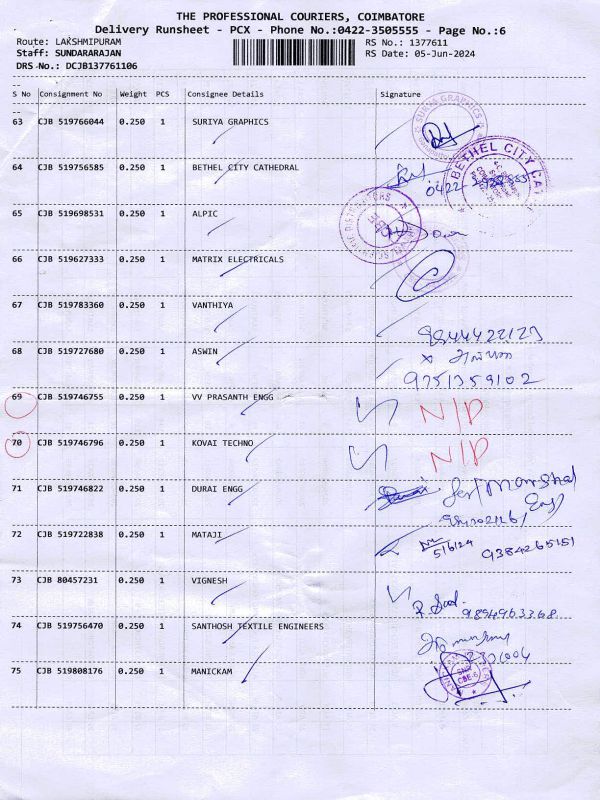 THE PROFESSIONAL COURIERS, COIMBATORE
Delivery Runsheet - PCX - Phone No.:0422-3505555 - Page No.:6
Route: LAKSHMIPURAM RS No.: 1377611
Staff: SUNDARARAJAN RS Date: 05-Jun-2024
DRS No.: DCJB137761106
S No Consignment No Weight PCS Consignee Details Signature
63 CJB 519766044 0.250 1 SURIYA GRAPHICS
SURYA GRAPHICS
64 CJB 519756585 0.250 1 BETHEL CITY CATHEDRAL
BETHEL CITY
0422
65 CJB 519698531 0.250 1 ALPIC
66 CJB 519627333 0.250 1 MATRIX ELECTRICALS
67 CJB 519783360 0.250 1 VANTHIYA
9844422123
68 CJB 519727680 0.250 1 ASWIN
9751359102
69 CJB 519746755 0.250 1 VV PRASANTH ENGG N/D
70 CJB 519746796 0.250 1 KOVAI TECHNO N/D
71 CJB 519746822 0.250 1 DURAI ENGG
72 CJB 519722838 0.250 1 MATAJI
5/6/24 9384265151
73 CJB 80457231 0.250 1 VIGNESH
9894963368
74 CJB 519756470 0.250 1 SANTHOSH TEXTILE ENGINEERS
75 CJB 519808176 0.250 1 MANICKAM